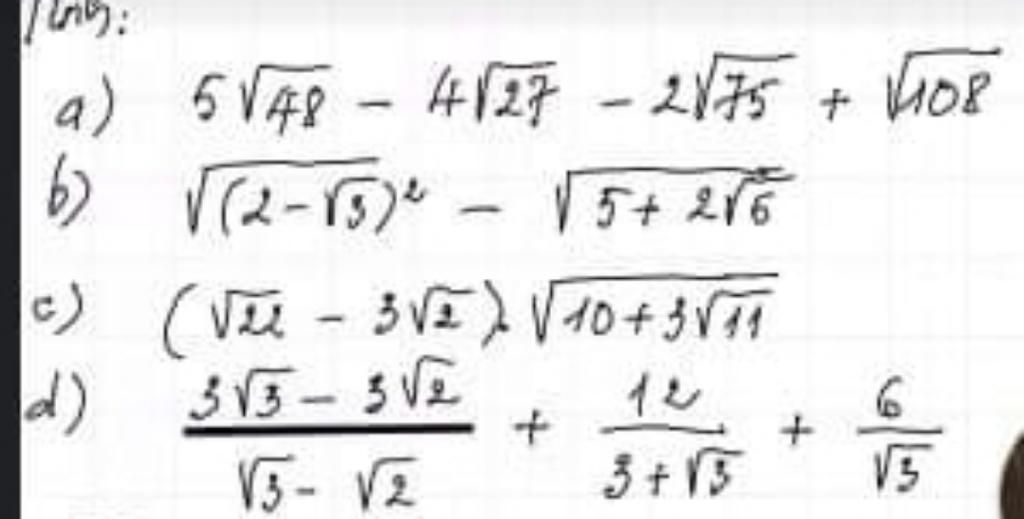 Tính:
a) 5√48 - 4√27 - 2√75 + √108
b) √((2-√3)²) - √(5+2√6)
c) (√22 - 3√2).√(10+3√11)
d) (3√3 - 3√2)/(√3 - √2) + 12/(3+√3) + 6/√3